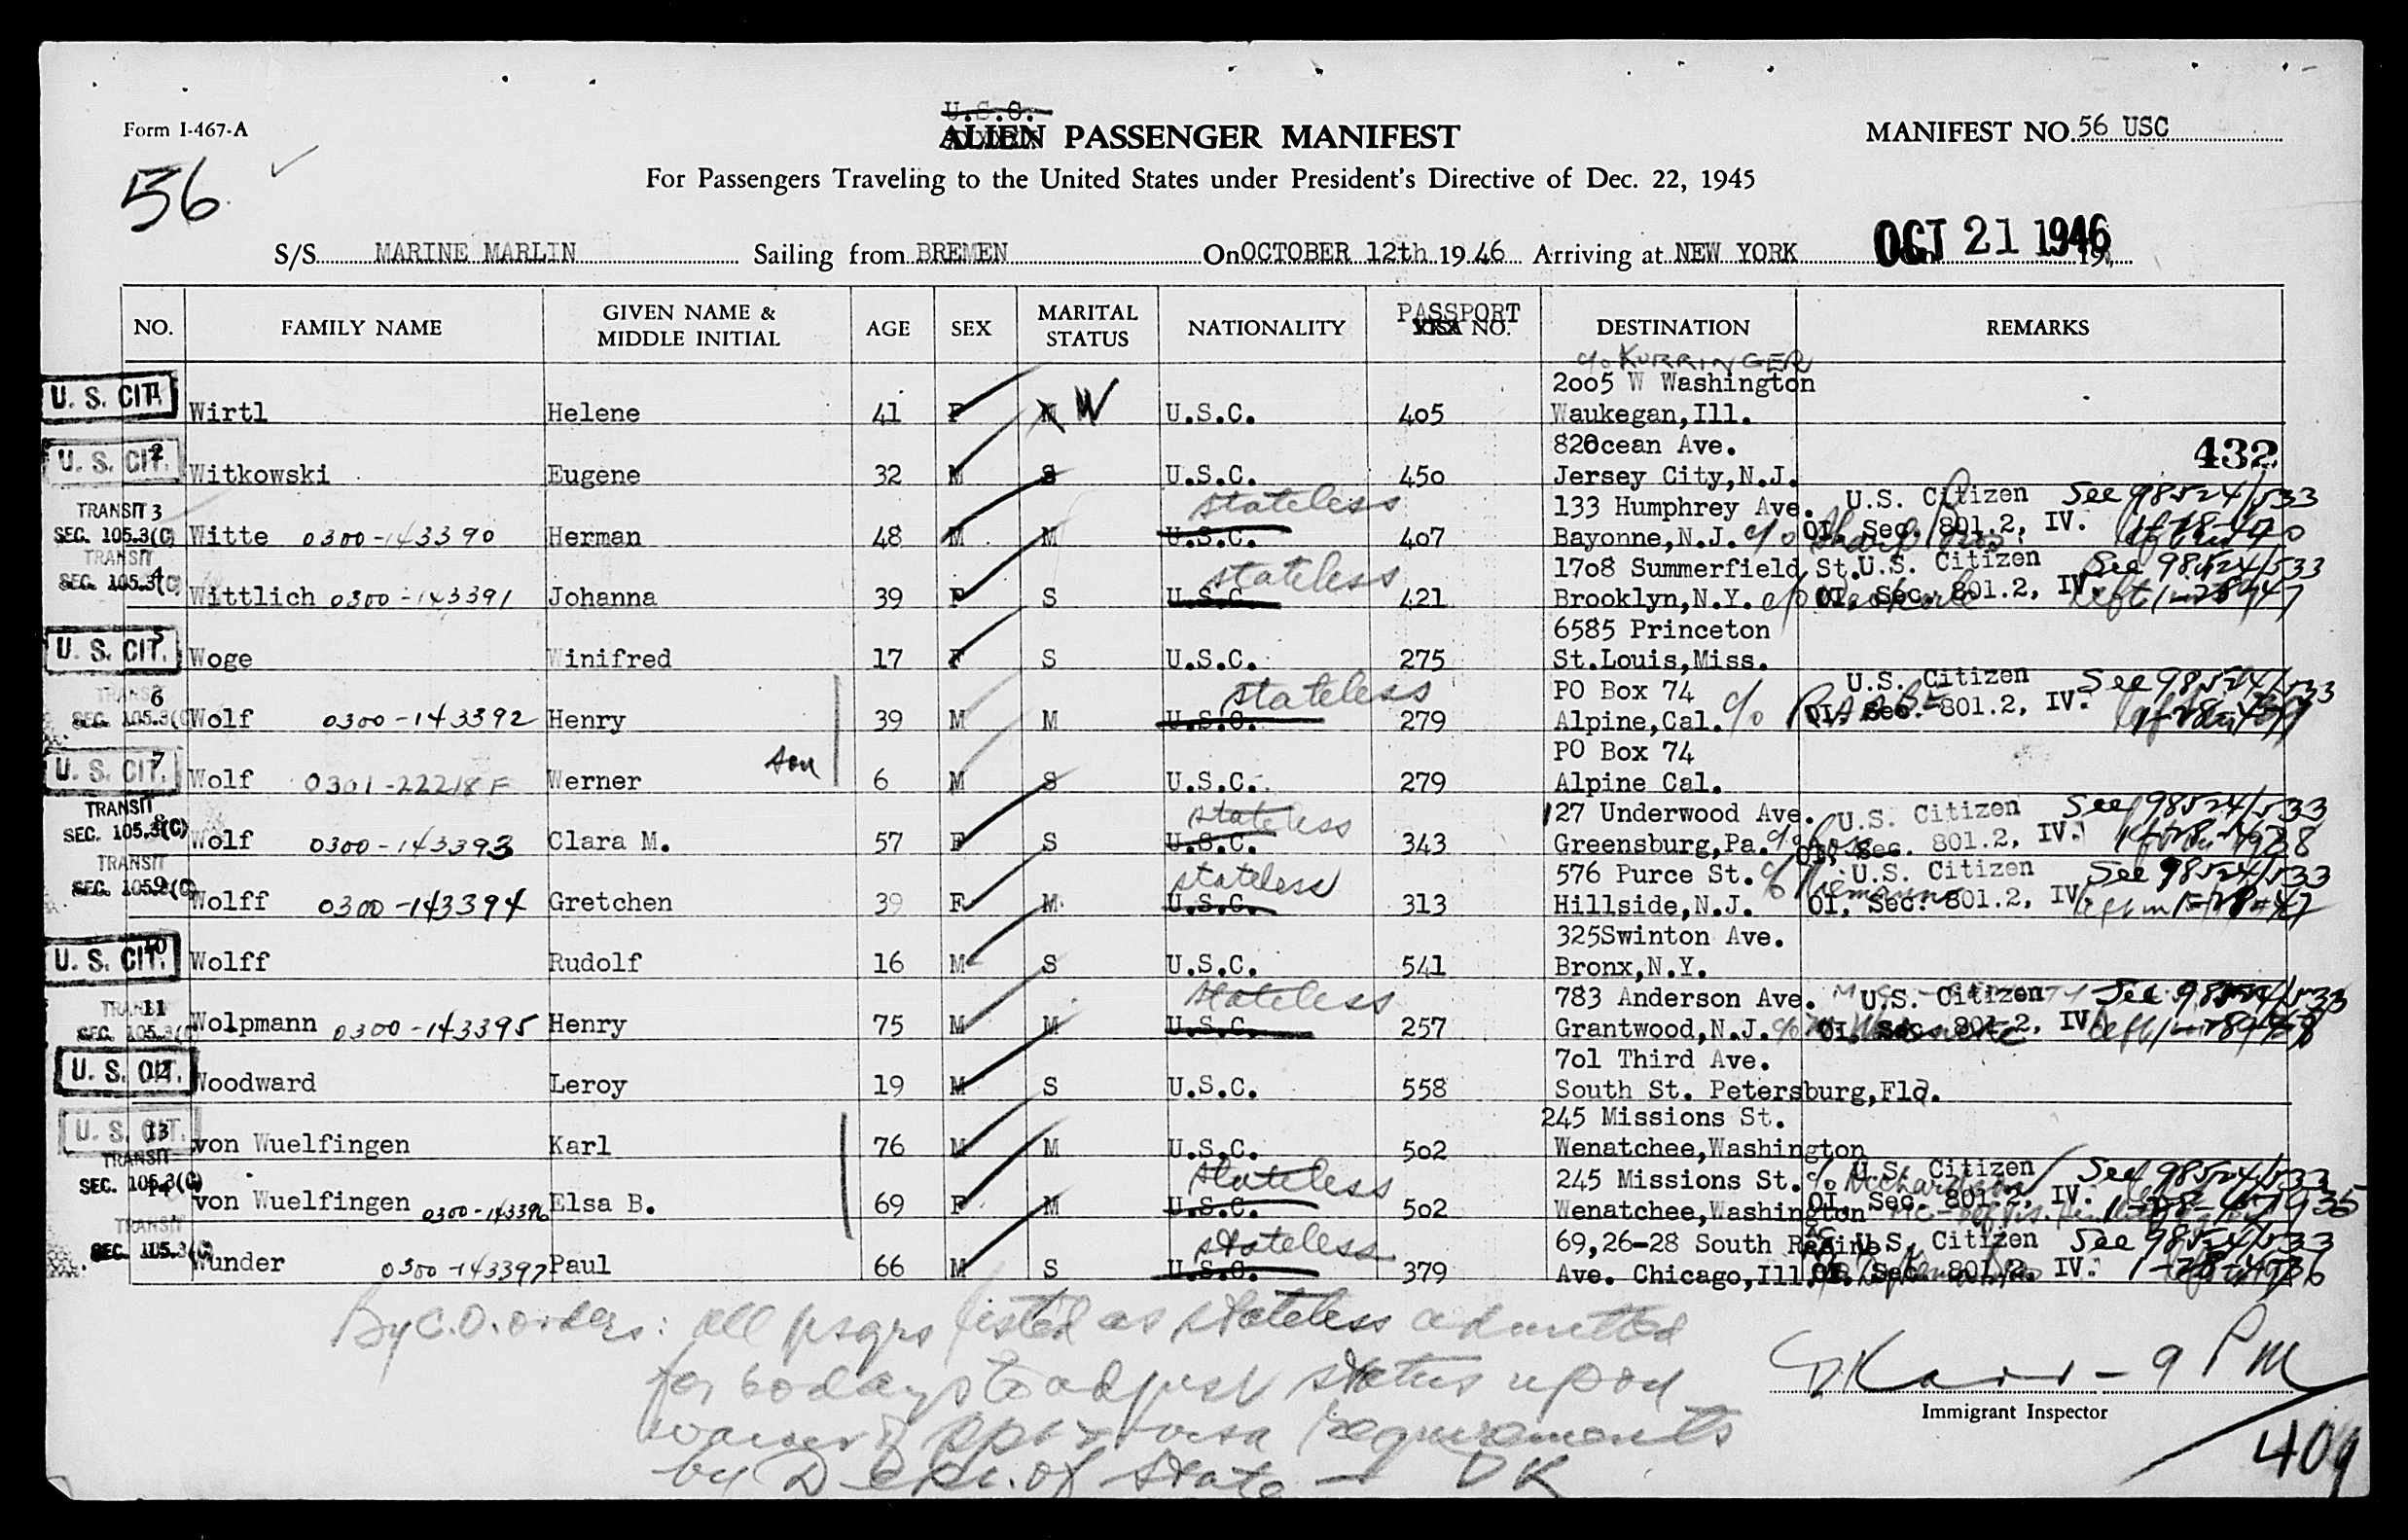 U.S.C.
Form I-467-A
ALIEN PASSENGER MANIFEST
MANIFEST NO. 56 USC
56
For Passengers Traveling to the United States under President's Directive of Dec. 22, 1945
S/S MARINE MARLIN Sailing from BREMEN On OCTOBER 12th 1946 Arriving at NEW YORK OCT 21 1946 19
NO. FAMILY NAME GIVEN NAME & MIDDLE INITIAL AGE SEX MARITAL STATUS NATIONALITY PASSPORT NO. DESTINATION REMARKS
c/o KURRINGER
2005 W Washington
U. S. CIT. 1 Wirtl Helene 41 F W U.S.C. 405 Waukegan,Ill.
82Ocean Ave. 432
U. S. CIT. 2 Witkowski Eugene 32 M S U.S.C. 450 Jersey City,N.J.
TRANSIT 3 stateless 133 Humphrey Ave. U.S. Citizen See 98524/533
SEC. 105.3(C) Witte 0300-143390 Herman 48 M M U.S.C. 407 Bayonne,N.J. c/o OI, Sec. 801.2, IV.
TRANSIT 4 stateless 1708 Summerfield St. U.S. Citizen See 98524/533
SEC. 105.3(C) Wittlich 0300-143391 Johanna 39 F S U.S.C. 421 Brooklyn,N.Y. c/o OI, Sec. 801.2, IV. left 1-28-47
6585 Princeton
U. S. CIT. 5 Woge Winifred 17 F S U.S.C. 275 St.Louis,Miss.
TRANSIT 6 stateless PO Box 74 U.S. Citizen See 98524/533
SEC. 105.3(C) Wolf 0300-143392 Henry 39 M M U.S.C. 279 Alpine,Cal. c/o OI, Sec. 801.2, IV. 1-28-47
PO Box 74
U. S. CIT. 7 Wolf 0301-22218F Werner son 6 M S U.S.C. 279 Alpine Cal.
TRANSIT 8 stateless 127 Underwood Ave. U.S. Citizen See 98524/533
SEC. 105.3(C) Wolf 0300-143393 Clara M. 57 F S U.S.C. 343 Greensburg,Pa. c/o OI, Sec. 801.2, IV.
TRANSIT stateless 576 Purce St. c/o U.S. Citizen See 98524/533
SEC. 105.3(C) 9 Wolff 0300-143394 Gretchen 39 F M U.S.C. 313 Hillside,N.J. OI, Sec. 801.2, IV. 1-28-47
325Swinton Ave.
U. S. CIT. 10 Wolff Rudolf 16 M S U.S.C. 541 Bronx,N.Y.
TRANSIT 11 stateless 783 Anderson Ave. U.S. Citizen See 98524/533
SEC. 105.3(C) Wolpmann 0300-143395 Henry 75 M M U.S.C. 257 Grantwood,N.J. c/o OI, Sec. 801.2, IV.
701 Third Ave.
U. S. CIT. 12 Woodward Leroy 19 M S U.S.C. 558 South St. Petersburg,Fla.
245 Missions St.
U. S. CIT. 13 von Wuelfingen Karl 76 M M U.S.C. 502 Wenatchee,Washington
TRANSIT stateless 245 Missions St. c/o Richardson U.S. Citizen See 98524/533
SEC. 105.3(C) 14 von Wuelfingen 0300-143396 Elsa B. 69 F M U.S.C. 502 Wenatchee,Washington OI, Sec. 801.2, IV. 1-28-47
TRANSIT stateless 69,26-28 South Racine U.S. Citizen See 98524/533
SEC. 105.3(C) Wunder 0300-143397 Paul 66 M S U.S.C. 379 Ave. Chicago,Ill. OI, Sec. 801.2, IV. 1-28-47
By C.O. orders: all psgrs listed as stateless admitted
for 60 days to adjust status upon
waiver of ppt & visa requirements
by Dept. of State — DK
DKarr - 9 PM
Immigrant Inspector
409